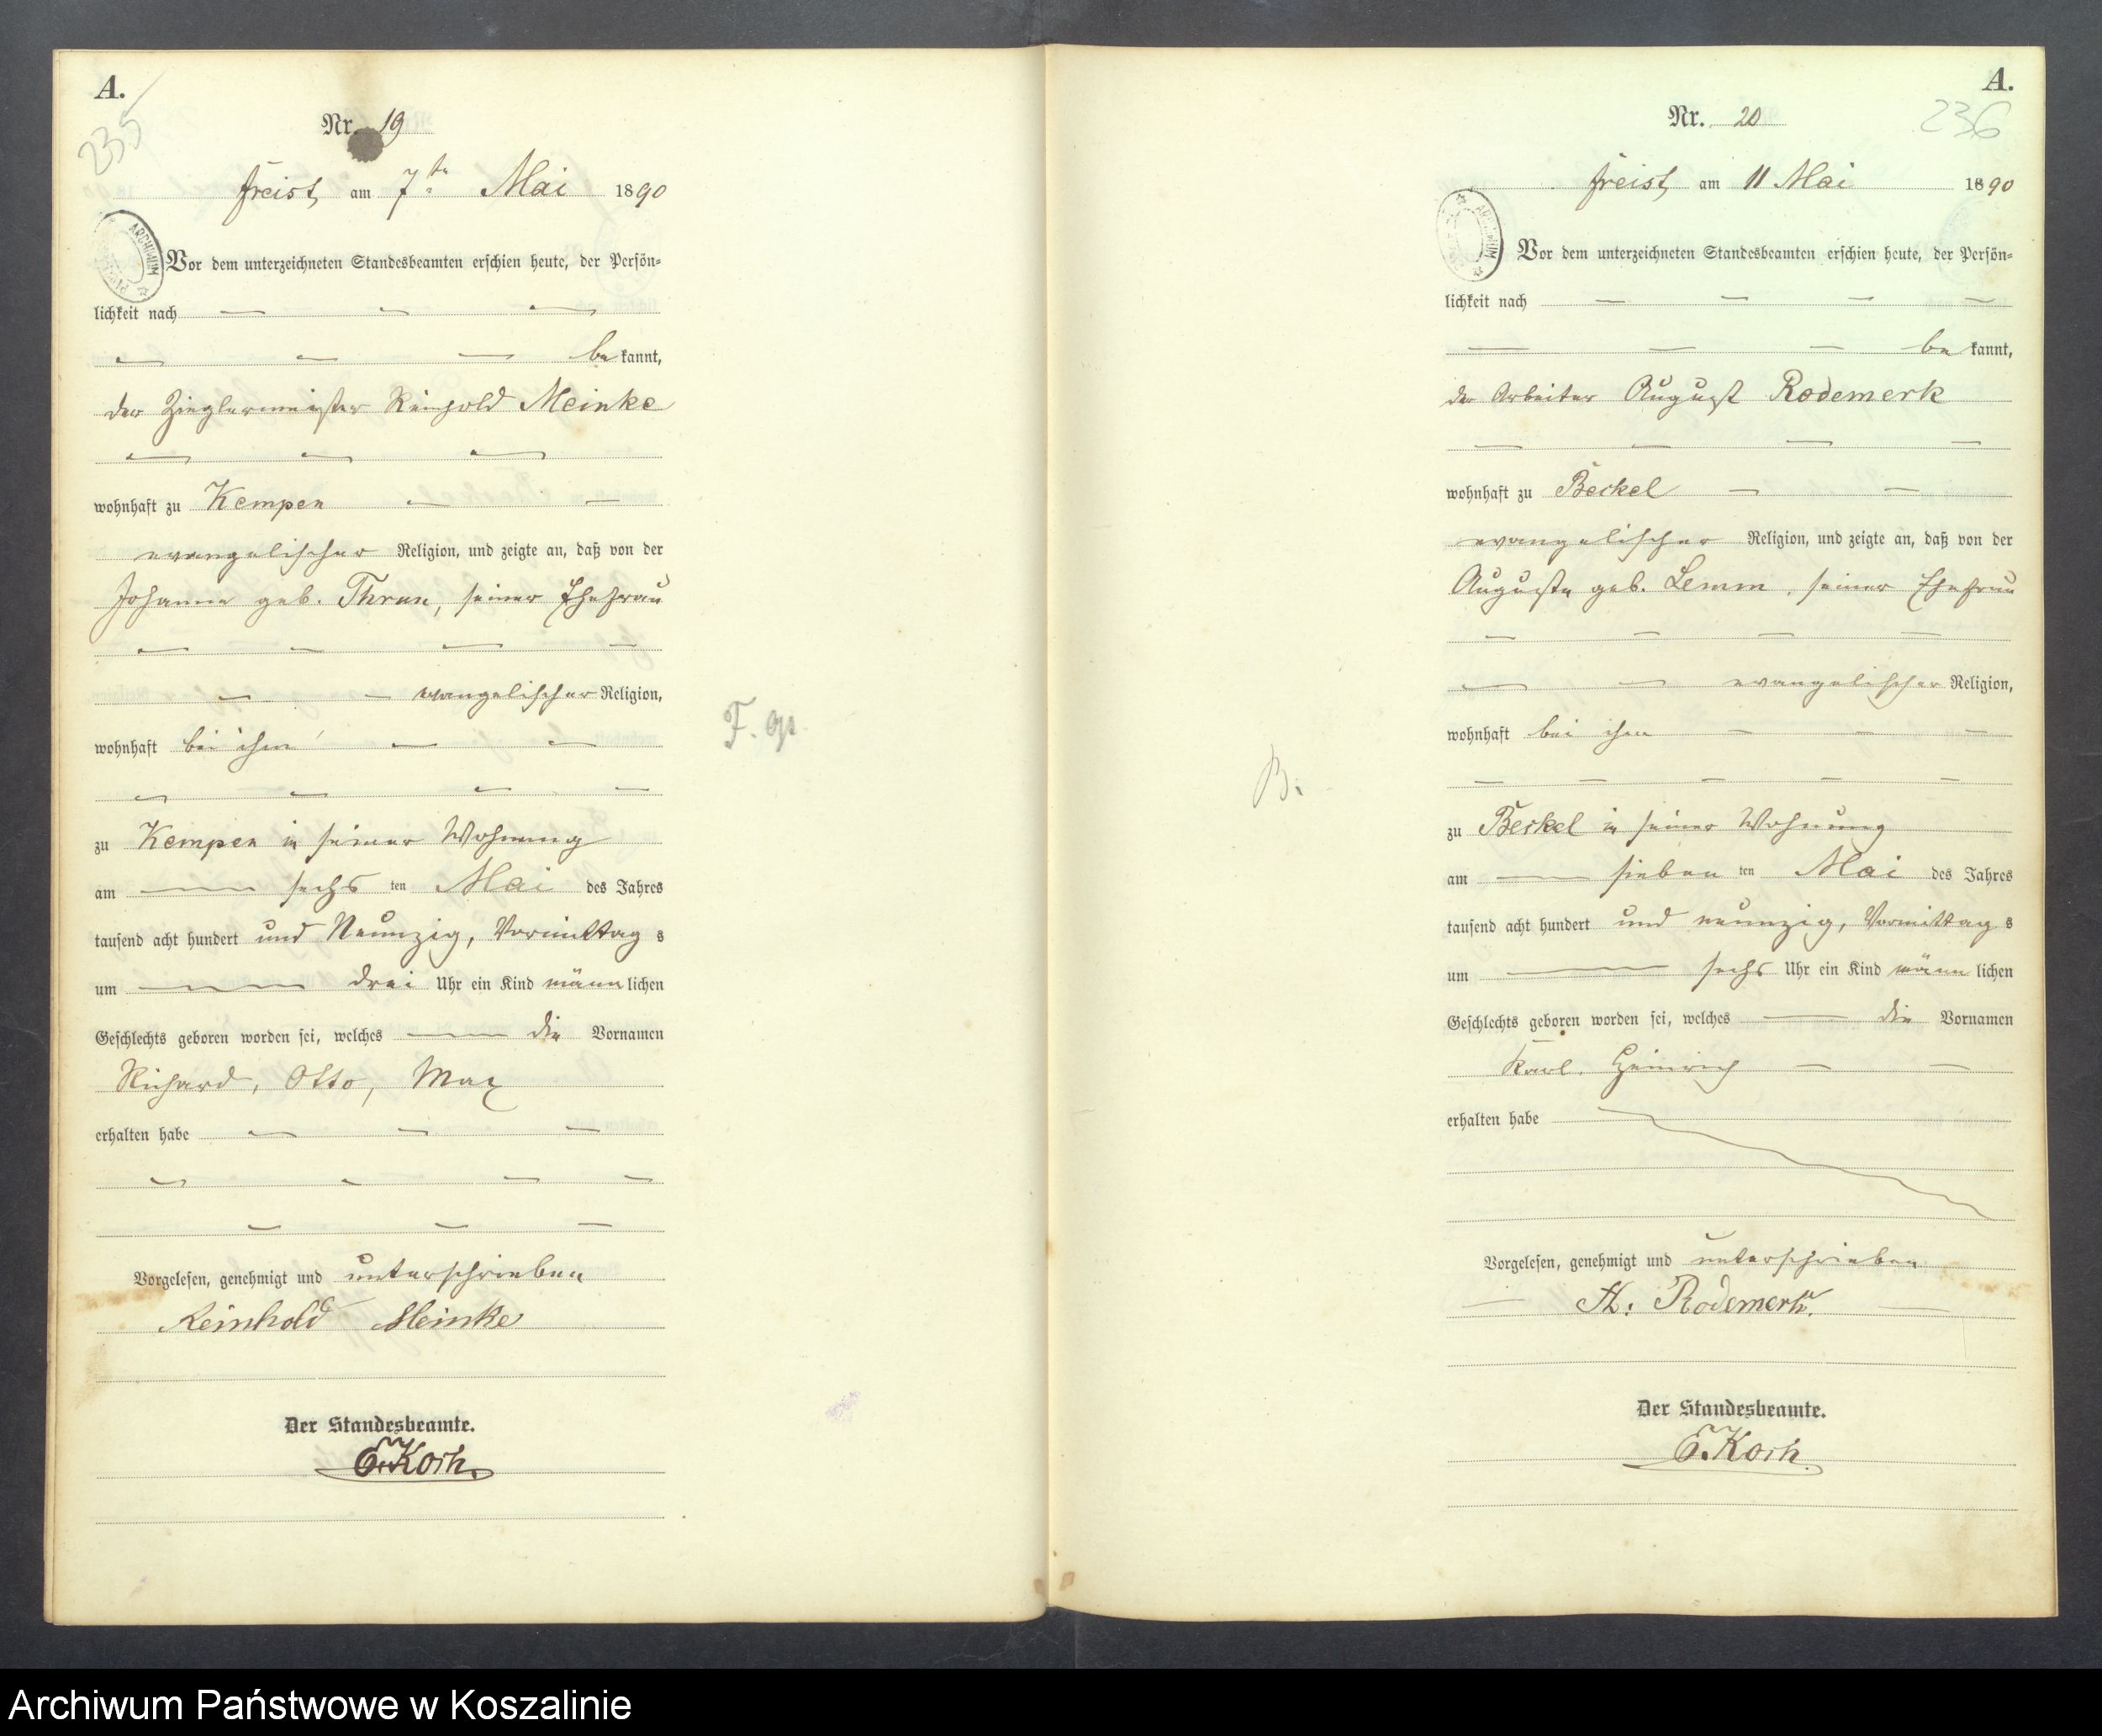 A.
235
Nr. 19
Freist, am 7ten Mai 1890
ARCHIWUM
Vor dem unterzeichneten Standesbeamten erschien heute, der Persön-
lichkeit nach
bekannt,
der Zieglermeister Reinhold Meinke
wohnhaft zu Kempen
evangelischer Religion, und zeigte an, daß von der
Johanne geb. Thrun, seiner Ehefrau
evangelischer Religion,
wohnhaft bei ihm
zu Kempen in seiner Wohnung
am sechs ten Mai des Jahres
tausend acht hundert und Neunzig, Vormittags
um drei Uhr ein Kind männlichen
Geschlechts geboren worden sei, welches die Vornamen
Richard, Otto, Max
erhalten habe
Vorgelesen, genehmigt und unterschrieben
Reinhold Meinke
Der Standesbeamte.
E. Koch.
F. gr.
A.
236
Nr. 20
Freist, am 11 Mai 1890
ARCHIWUM
Vor dem unterzeichneten Standesbeamten erschien heute, der Persön-
lichkeit nach
bekannt,
der Arbeiter August Rodemerk
wohnhaft zu Beckel
evangelischer Religion, und zeigte an, daß von der
Auguste geb. Lemm, seiner Ehefrau
evangelischer Religion,
wohnhaft bei ihm
zu Beckel in seiner Wohnung
am sieben ten Mai des Jahres
tausend acht hundert und neunzig, Vormittags
um sechs Uhr ein Kind männlichen
Geschlechts geboren worden sei, welches die Vornamen
Karl. Heinrich
erhalten habe
Vorgelesen, genehmigt und unterschrieben
A. Rodemerk.
Der Standesbeamte.
E. Koch.
B.
Archiwum Państwowe w Koszalinie